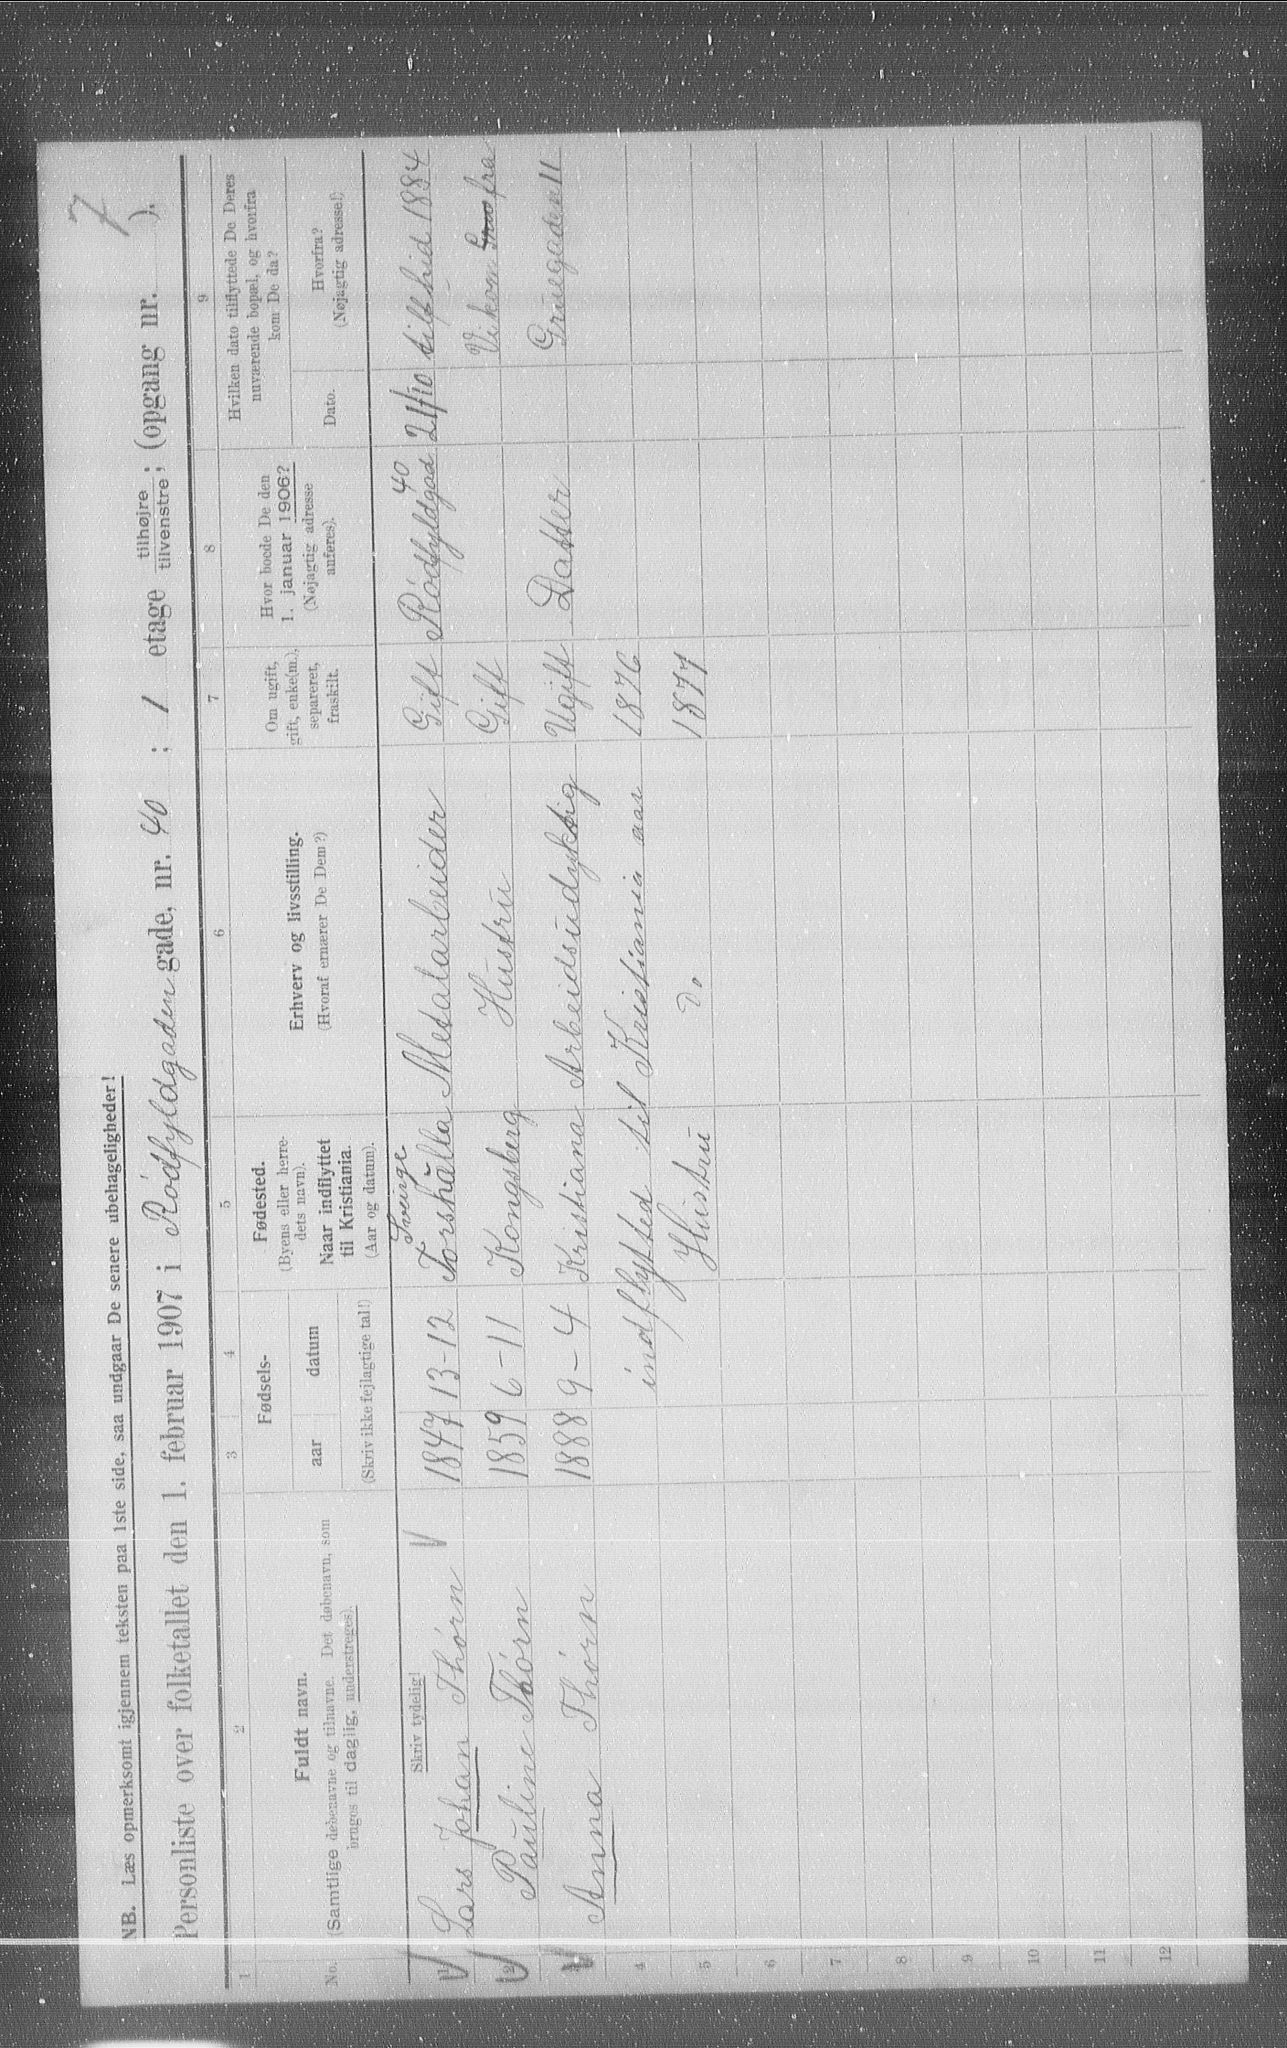 7
NB. Læs opmerksomt igjennem teksten paa 1ste side, saa undgaar De senere ubehageligheder!
Personliste over folketallet den 1. februar 1907 i Rödfyldgaden gade, nr. 40 ; 1 etage tilhøjre tilvenstre ; (opgang nr. ).
1 2 3 4 5 6 7 8 9
No.
Fuldt navn.
(Samtlige døbenavne og tilnavne. Det døbenavn, som
bruges til daglig, understreges).
Skriv tydelig!
Fødsels-
aar datum
(Skriv ikke fejlagtige tal!)
Fødested.
(Byens eller herre-
dets navn).
Naar indflyttet
til Kristiania.
(Aar og datum).
Erhverv og livsstilling.
(Hvoraf ernærer De Dem?)
Om ugift,
gift, enke(m.),
separeret,
fraskilt.
Hvor boede De den
1. januar 1906?
(Nøjagtig adresse
anføres).
Hvilken dato tilflyttede De Deres
nuværende bopæl, og hvorfra
kom De da?
Dato.
Hvorfra?
(Nøjagtig adresse!)
1 Lars Johan Thórn 1847 13-12 Sveige Torshälla Metalarbeider Gift Rödfyldgad 40 21/10 tilf hid 1884
2 Pauline Thórn 1859 6-11 Kongsberg Hustru Gift Vi kom fra
3 Anna Thórn 1888 9-4 Kristiana Arbeidsudyktig Ugift Datter Grüegaden 11
4 indflytted til Kristiania aar 1876
5 Hustru Do 1877
6
7
8
9
10
11
12